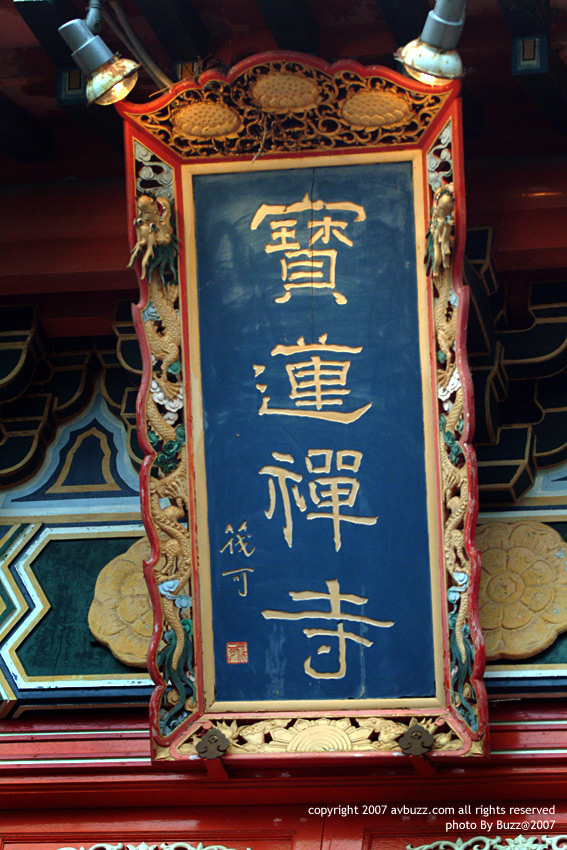 寶蓮禪寺
筏可
copyright 2007 avbuzz.com all rights reserved
photo By Buzz@2007